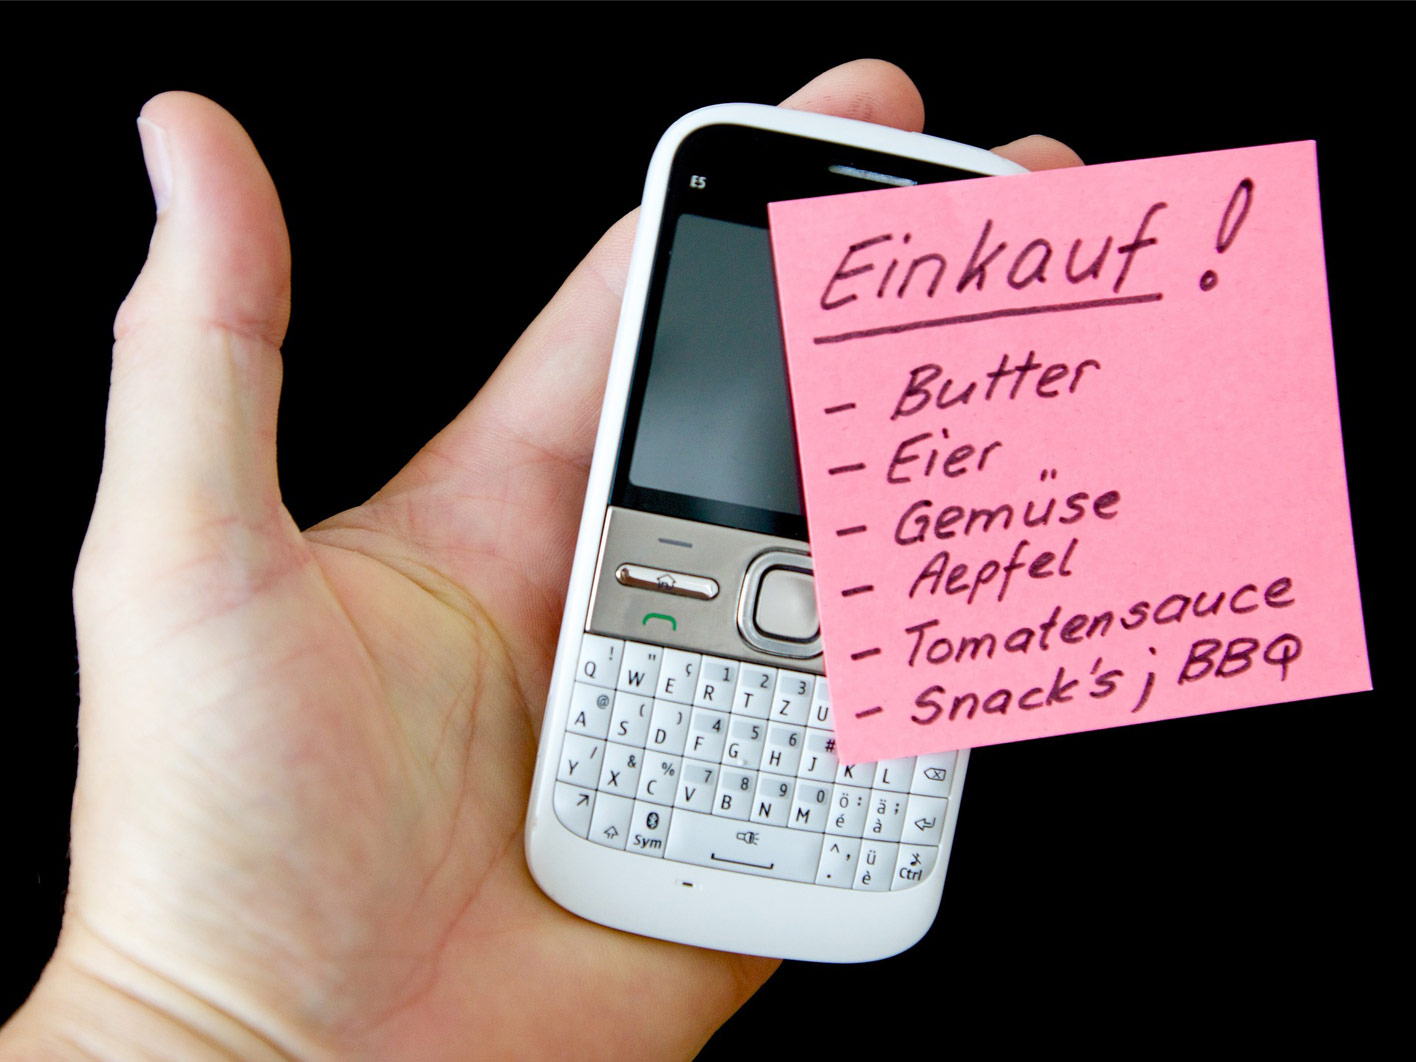 E5
Einkauf !
- Butter
- Eier
- Gemüse
- Aepfel
- Tomatensauce
- Snack's ; BBQ
! " ç 1 2 3
Q W E R T Z U
@ ( ) 4 5 6 #
A S D F G H J K L
/ & % 7 8 9 0 ö : ä ;
Y X C V B N M é à
Sym ^ , . ü è Ctrl